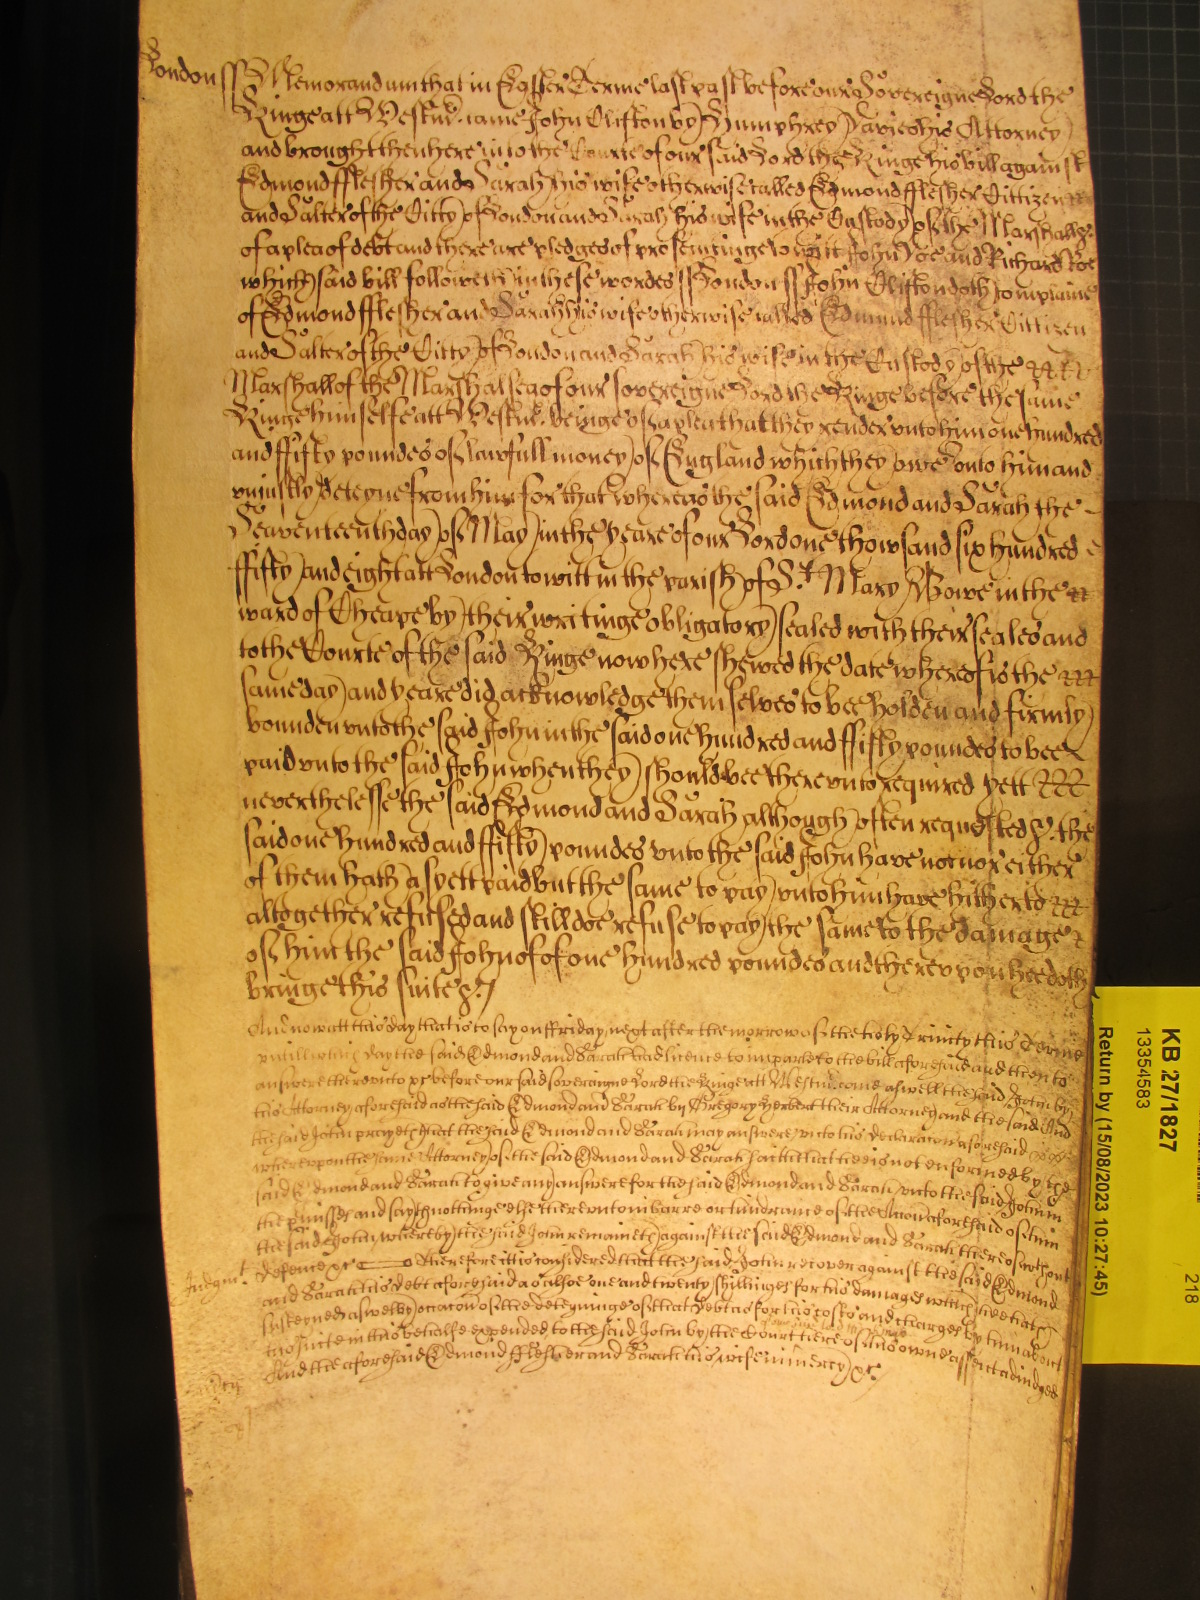 London ss Memorandum that in Easter Terme last past before our Sovereigne Lord the
Kinge att Westm̃. came John Clifton by Humphrey Davie his Attorney
and brought then here into the Courte of our said Lord the Kinge his bill against
Edmond fflesher and Sarah his wife otherwise called Edmond fflesher Cittizen
and Salter of the Citty of London and Sarah his wife in the Custody of the Marshall &c.
of a plea of debt and there are pledges of prosecutinge to witt John Doe and Richard Roe
which said bill followeth in these wordes ss London ss John Clifton doth complaine
of Edmond fflesher and Sarah his wife otherwise called Edmund fflesher Cittizen
and Salter of the Citty of London and Sarah his wife in the Custody of the
Marshall of the Marshalsea of our sovereigne Lord the Kinge before the same
Kinge himselfe att Westm̃. beinge of a plea that they render unto him one hundred
and ffifty poundes of lawfull money of England which they owe unto him and
uniustly deteyne from him for that whereas the said Edmond and Sarah the
Seaventeenth day of May in the yeare of our Lord one thowsand six hundred
ffifty and eight att London to witt in the parish of St. Mary Bowe in the
ward of Cheape by their writinge obligatory sealed with their seales and
to the Courte of the said Kinge now here shewed the date whereof is the
same day and yeare did acknowledge themselves to bee holden and firmly
bounden unto the said John in the said one hundred and ffifty poundes to bee
paid unto the said John when they should bee thereunto required yett
neverthelesse the said Edmond and Sarah although often requested &c. the
said one hundred and ffifty poundes unto the said John have not nor either
of them hath as yett paid but the same to pay unto him have hitherto
altogether refused and still doe refuse to pay the same to the damage
of him the said John of of one hundred poundes and thereupon hee doth
bringe this suite &c.
And now att this day that is to say on ffriday next after the morrow of the holy Trinity this Terme
untill which day the said Edmond and Sarah had licence to imparle to the bill aforesaid and then to
answere thereunto &c before our said soveraigne Lord the Kinge att Westm̃. come aswell the said John by
his Attorney aforesaid as the said Edmond and Sarah by Gregory Herbert their Attorney and the said And
the said John prayeth that the said Edmond and Sarah may answere unto his declaracon aforesaid &c
whereupon the same Attorney of the said Edmond and Sarah saith that hee is not enformed by the
said Edmond and Sarah to give any answere for the said Edmond and Sarah unto the said John in
the p̃misses and sayth nothinge else thereunto in barre or hindrance of the Accon aforesaid of him
the said John whereby the said John remaineth against the said Edmond and Sarah thereof without
Judgmt. defence &c Therefore itt is considered that the said John recover against the said Edmond
and Sarah his debt aforesaid as alsoe one and twenty shillinges for his damages which hee hath
susteyned aswell by occacon of the deteyninge of that debt as for his costs and charges by him about
his suite in this behalfe expended to the said John by the Court here of his owne assent adiudged
And the aforesaid Edmond fflesher and Sarah his wife in mercy &c.
KB 27/1827
13354583
Return by (15/08/2023 10:27:45)
218